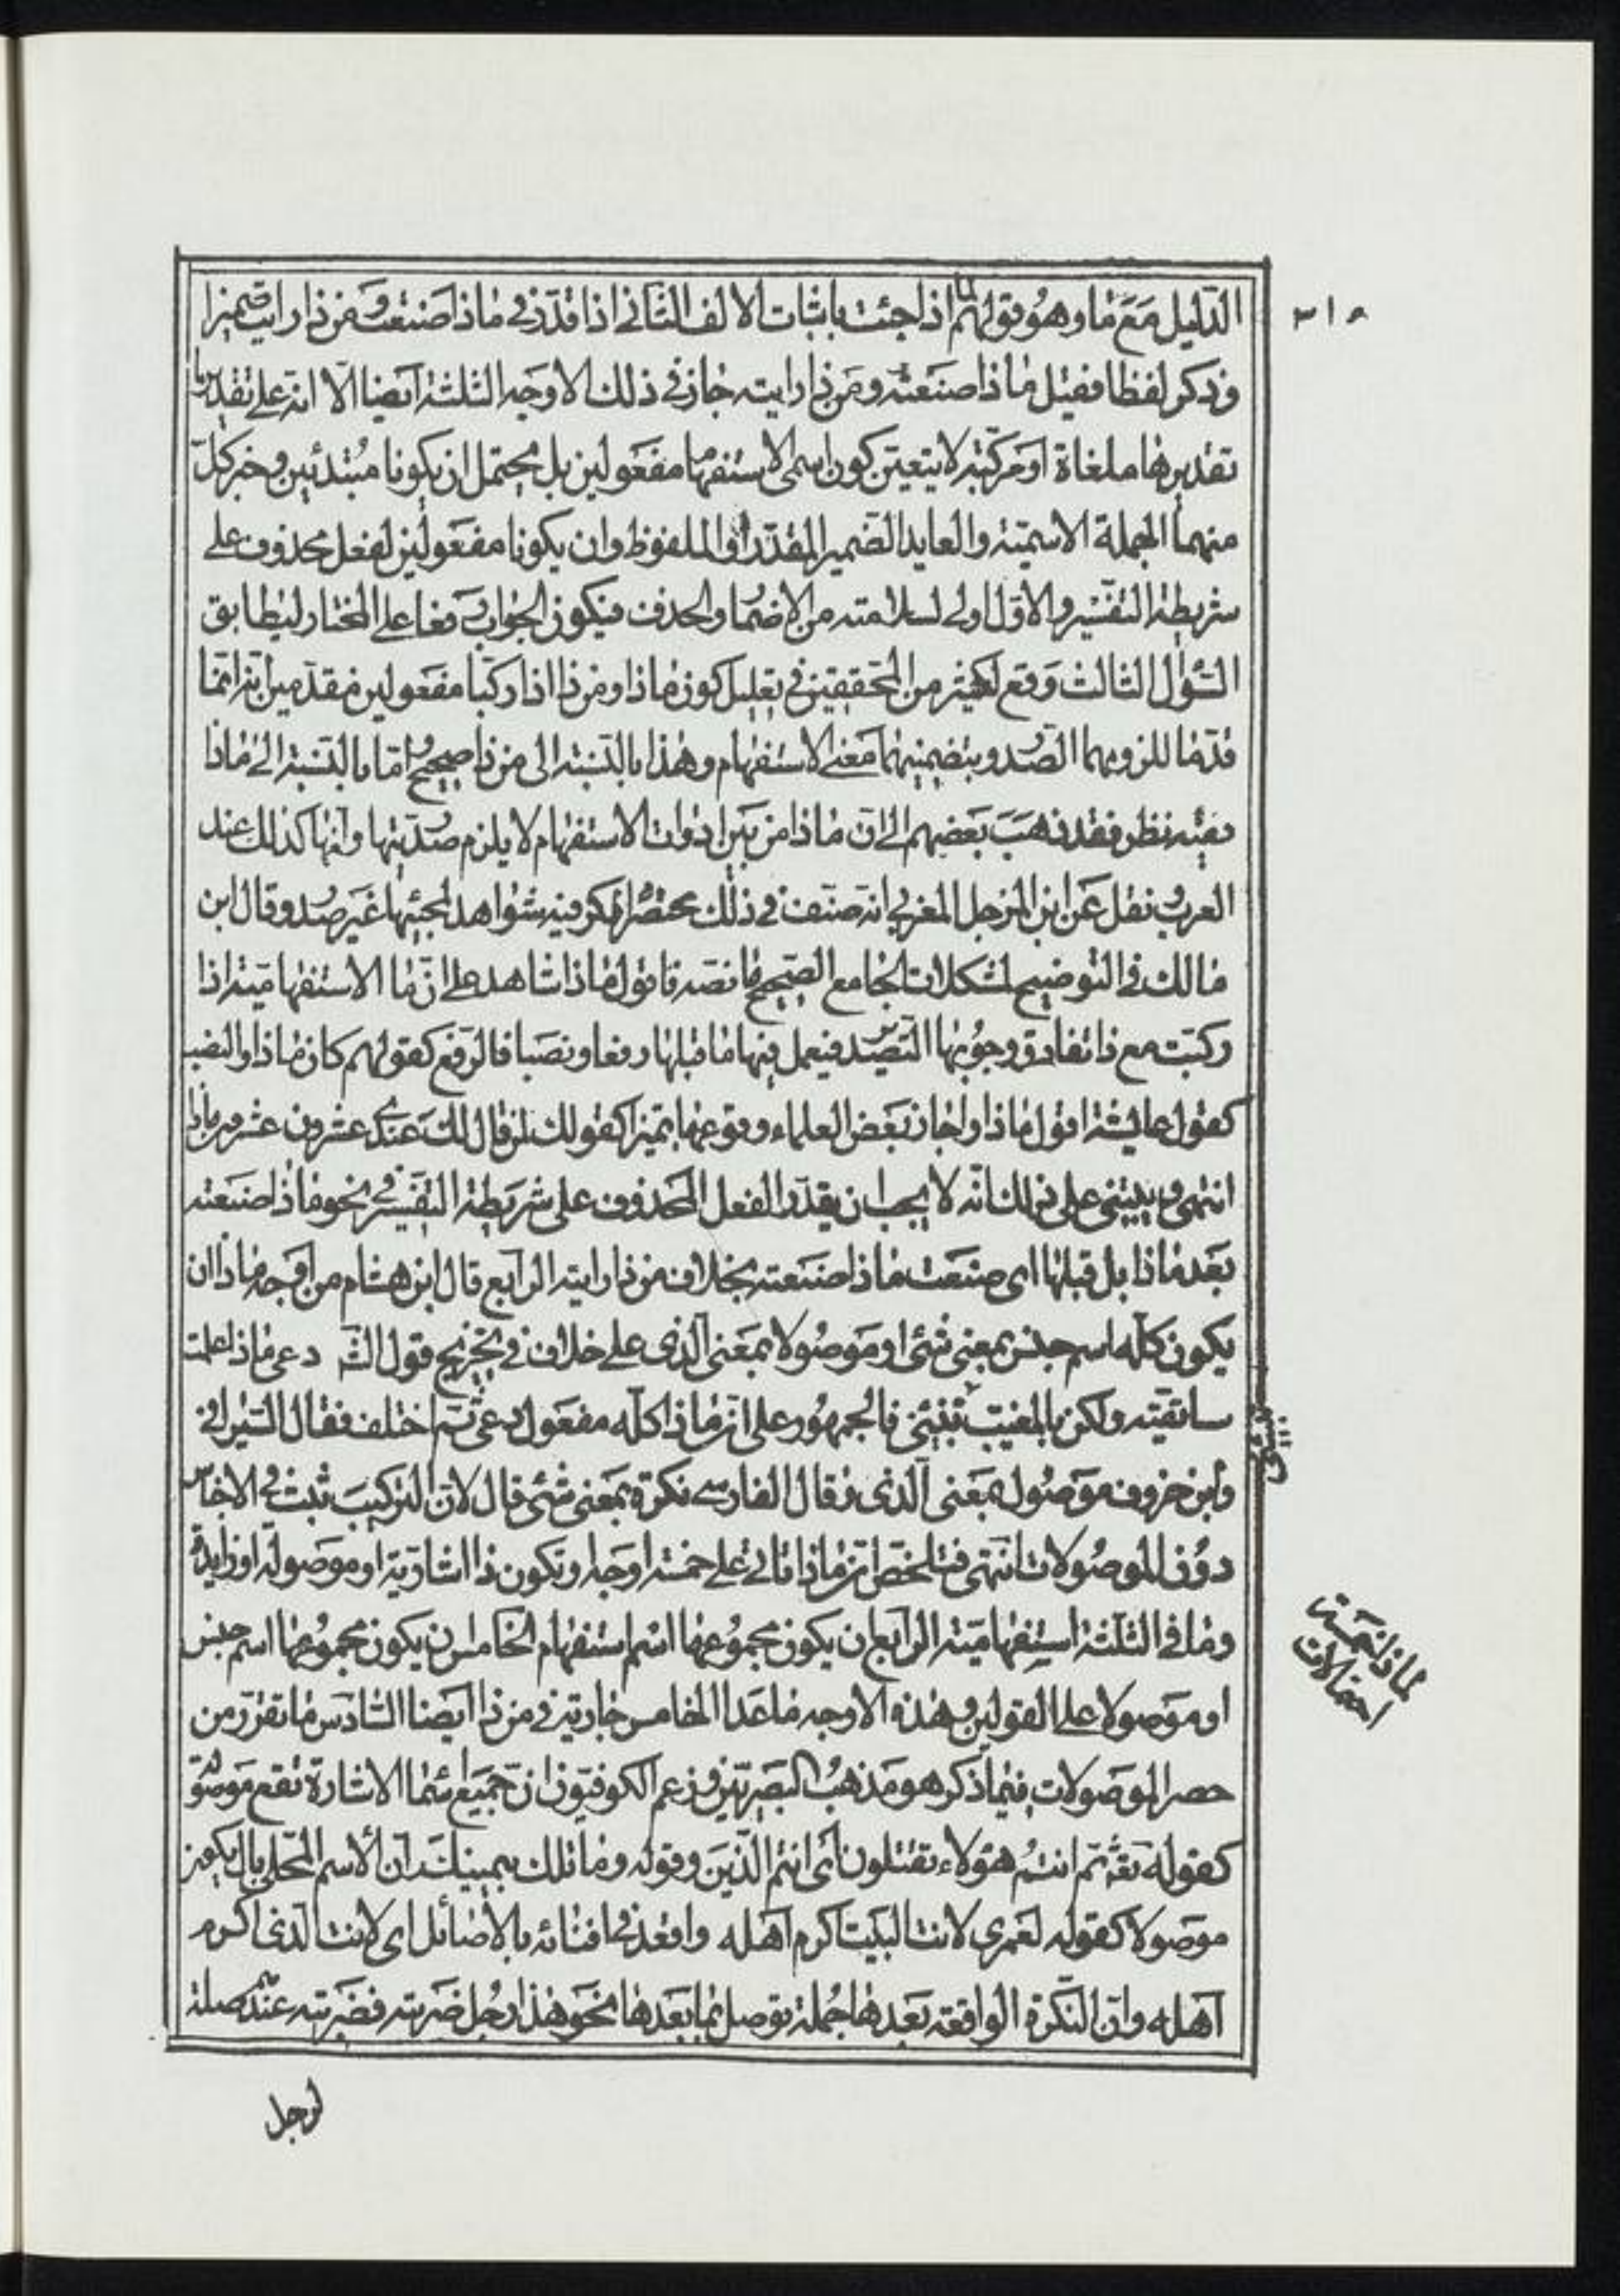 ٣١٥
الدّليل مَعَ ما وهُو قولهم لما ذا جئت باثبات الالف الثّانى اذا قدّر فى ماذا صَنَعت ومَن ذا رايت ضمير
وذكر لفظا فقيل ماذا صَنَعته ومَن ذا رايته جاز فى ذلك الاوجه الثلثة ايضا الّا انّه على تقدير
تقديرها ملغاة او مركّبة لا يتعيّن كون اسمى الاستفهام مفعولين بل يحتمل ان يكونا مبتدئين وخبر كلّ
منهما الجملة الاسميّة والعايد الضمير المقدّر او الملفوظ وان يكونا مفعولين لفعل محذوف على
شريطة التفسير والاوّل اولى لسلامته من الاضمار والحذف فيكون الجواب رفعا على المختار ليطابق
السّؤال الثالث وقع لكثير من المحققين فى تعليل كون ماذا ومن ذا اذا ركّبا مفعولين مقدّمين انّهما
قدّما للزومهما الصّدر بتضمينهما معنى الاستفهام وهذا بالنّسبة الى من ذا صحيح وامّا بالنّسبة الى ماذا
ففيه نظر فقد ذهب بعضهم الى انّ ماذا من بين ادوات الاستفهام لا يلزم صدريّتها وانّها كذلك عند
العرب ونقل عَن ابن المرحل المغربى انه صنّف فى ذلك مختصرا ذكر فيه شواهد لمجيئها غير صدر وقال ابن
مالك فى التوضيح لمشكلات الجامع الصّحيح ما نصّه فاقول ماذا شاهد على انّ ما الاستفهاميّة اذا
ركبّت مع ذا تفارق وجوبها التّصدير فيعمل فيها ما قبلها رفعا ونصبا فالرّفع كقولهم كان ماذا والنصب
كقول عايشة اقول ماذا واجاز بَعض العلماء وقوعها تميزا كقولك لمن قال لك عندى عشرون عشرون ماذا
انتهى ويبتنى على ذلك انّه لا يجب ان يقدّر الفعل المحذوف على شريطة التفسير فى نحو ماذا صَنَعته
بَعد ماذا بل قبلها اى صنعت ماذا صنعته بخلاف من ذا رايته الرابع قال ابن هشام من اوجه ماذا ان
يكون كلّه اسم جنس بمعنى شئ او موصُولا بمعنى الّذى على خلاف فى تخريج قول الشّ دعى ماذا علمت
ساتّقيه ولكن بالمغيّب نبّئينى فالجمهُور على انّ ماذا كلّه مفعول دعى ثم اختلف فقال السّيرافى
وابن خروف موصُول بمعنى الّذى وقال الفارسى نكرة بمعنى شئ قال لانّ التّركيب ثبت فى الاجناس
دون الموصُولات انتهى فتلخّص انّ ماذا تاتى على خمسة اوجه وتكون ذا اشاريّة او موصولة او زايدة
وما فى الثلثة استفهاميّة الرابع ان يكون مجموعها اسم استفهام الخامس ان يكون مجموعها اسم جنس
او موصولا على القولين وهذه الاوجه ماعدا الخامس جارية فى من ذا ايضا السّادس ما تقرّر من
حصر الموصَولات فيما ذكر هو مذهب البصريّين وزعم الكوفيّون انّ جميع اسما الاشارة تقع موصو
كقوله تعَ ثم انتم هؤلاء تقتلون اى انتم الّذين وقوله وما تلك بيمينك وانّ الاسم المحلّى بال يكون
موصولا كقوله لعمرى لانت البيت اكرم اهله واقعد فى افنائه بالاصائل اى لانت الّذى اكرم
اهله وانّ النّكرة الواقعة بعدها جُملة توصل بما بعدها نحو هذا رجُل ضربته فضربته عندهم صلة
لماذا خمسة
احتمالات
لرجل